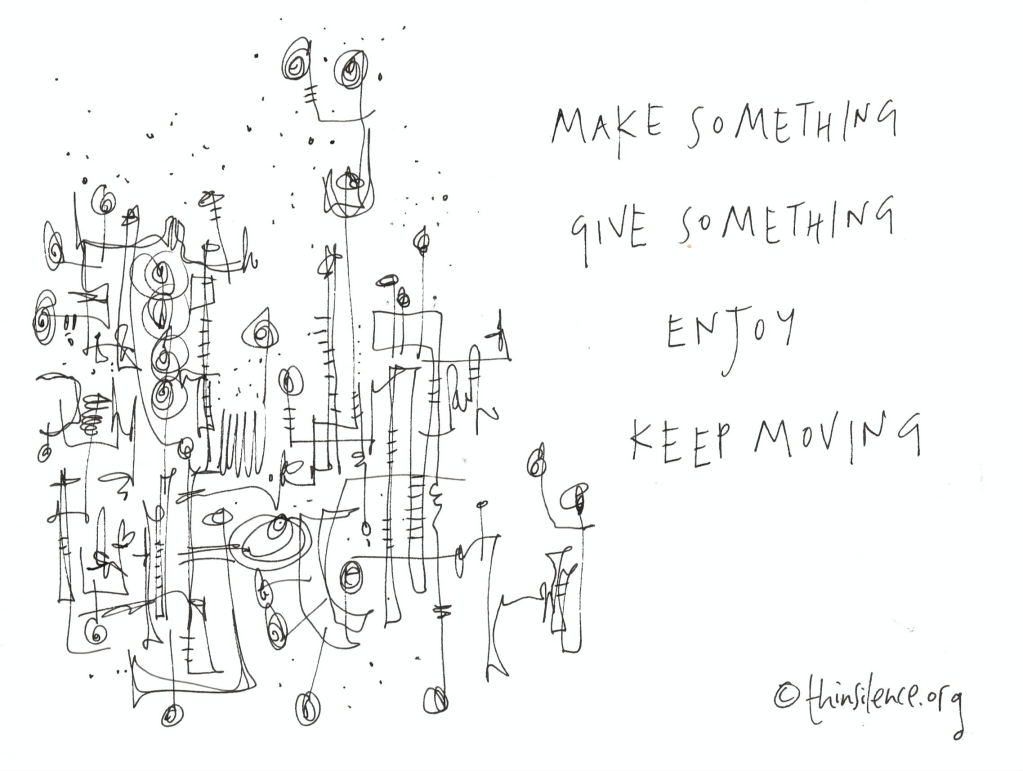 MAKE SOMETHING
GIVE SOMETHING
ENJOY
KEEP MOVING
©thinsilence.org